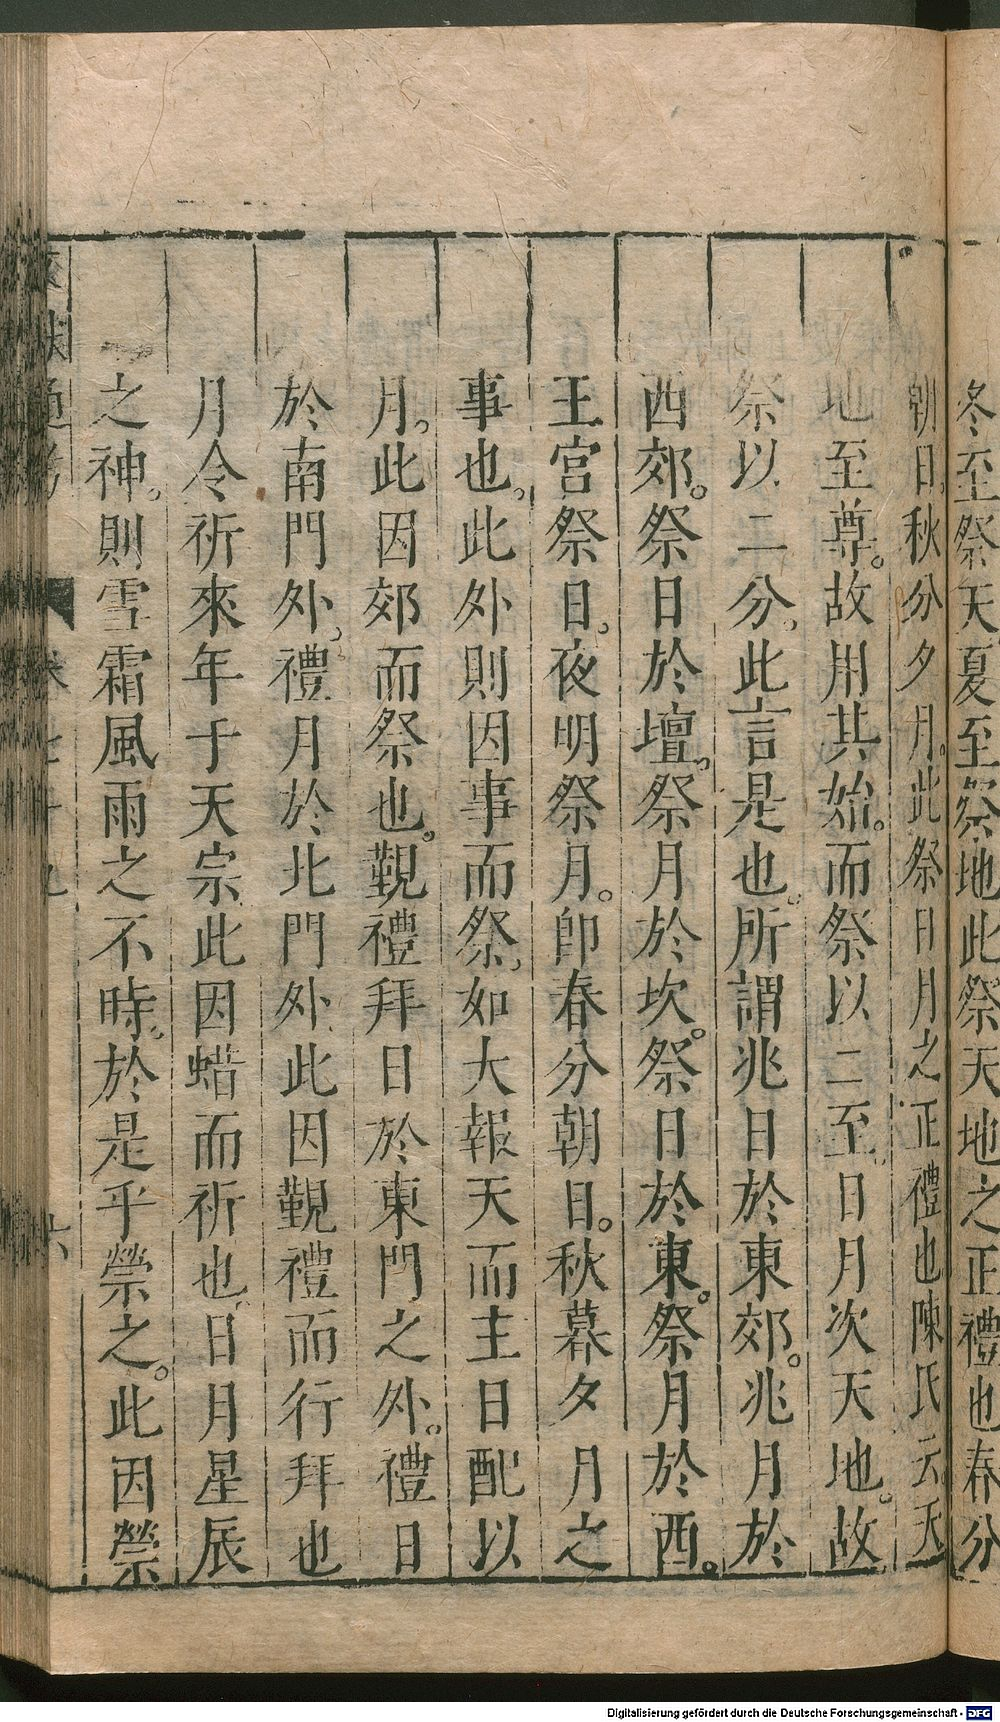 冬至祭天夏至祭地此祭天地之正禮也春分
朝日秋分夕月。此祭日月之正禮也陳氏云天
地至尊。故用其始。而祭以二至。日月次天地。故
祭以二分。此言是也。所謂兆日於東郊。兆月於
西郊。祭日於壇。祭月於坎。祭日於東。祭月於西。
王宮祭日。夜明祭月。卽春分朝日。秋暮夕月之
事也。此外則因事而祭。如大報天而主日配以
月。此因郊而祭也。覲禮拜日於東門之外。禮日
於南門外。禮月於北門外此因覲禮而行拜也
月令祈來年于天宗此因蜡而祈也日月星辰
之神。則雪霜風雨之不時。於是乎禜之。此因禜
通考 卷七十九
Digitalisierung gefördert durch die Deutsche Forschungsgemeinschaft - DFG